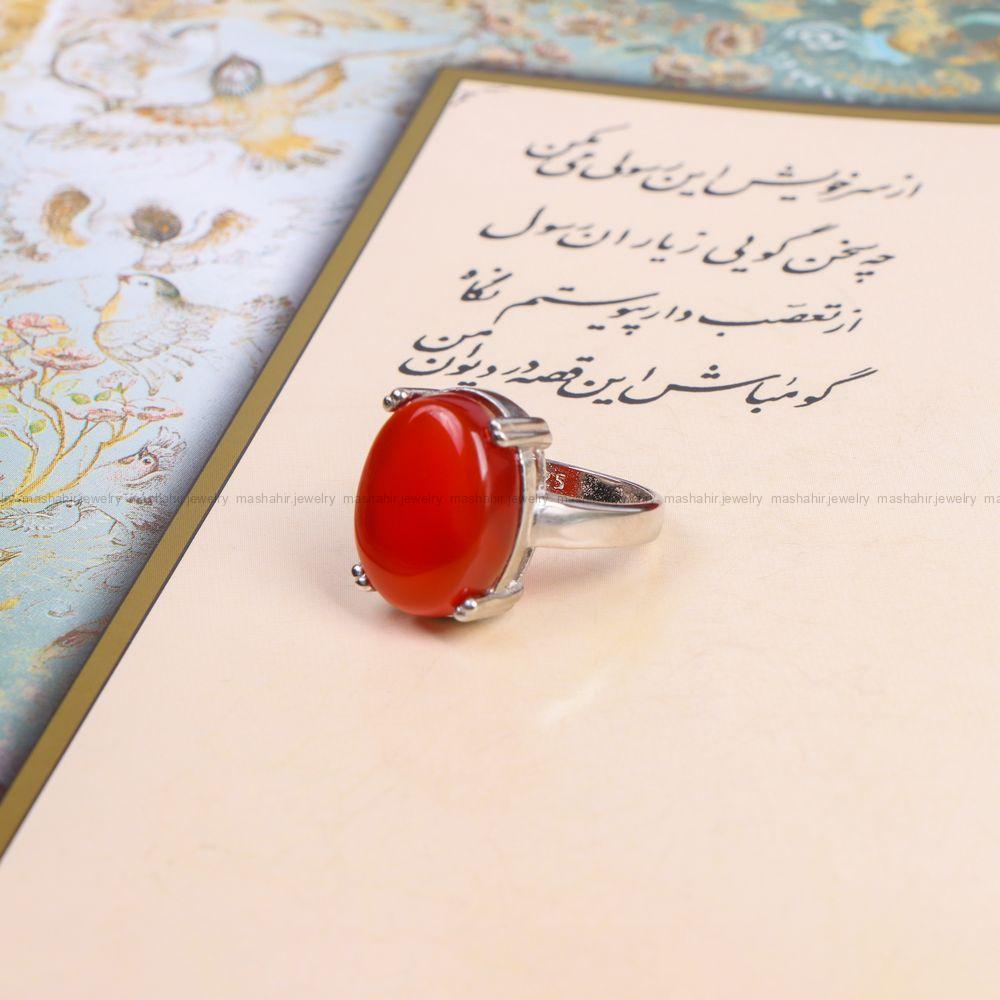 از سر خویش این رسولی می‌کن
چه سخن گویی ز یاران رسول
از تعصب دار پیوستم نگاه
گو مباش این قصه در دیوان من
mashahir.jewelry mashahir.jewelry mashahir.jewelry mashahir.jewelry mashahir.jewelry mashahir.jewelry mashahir.jewelry mashahir.jewelry mashahir.jewelry